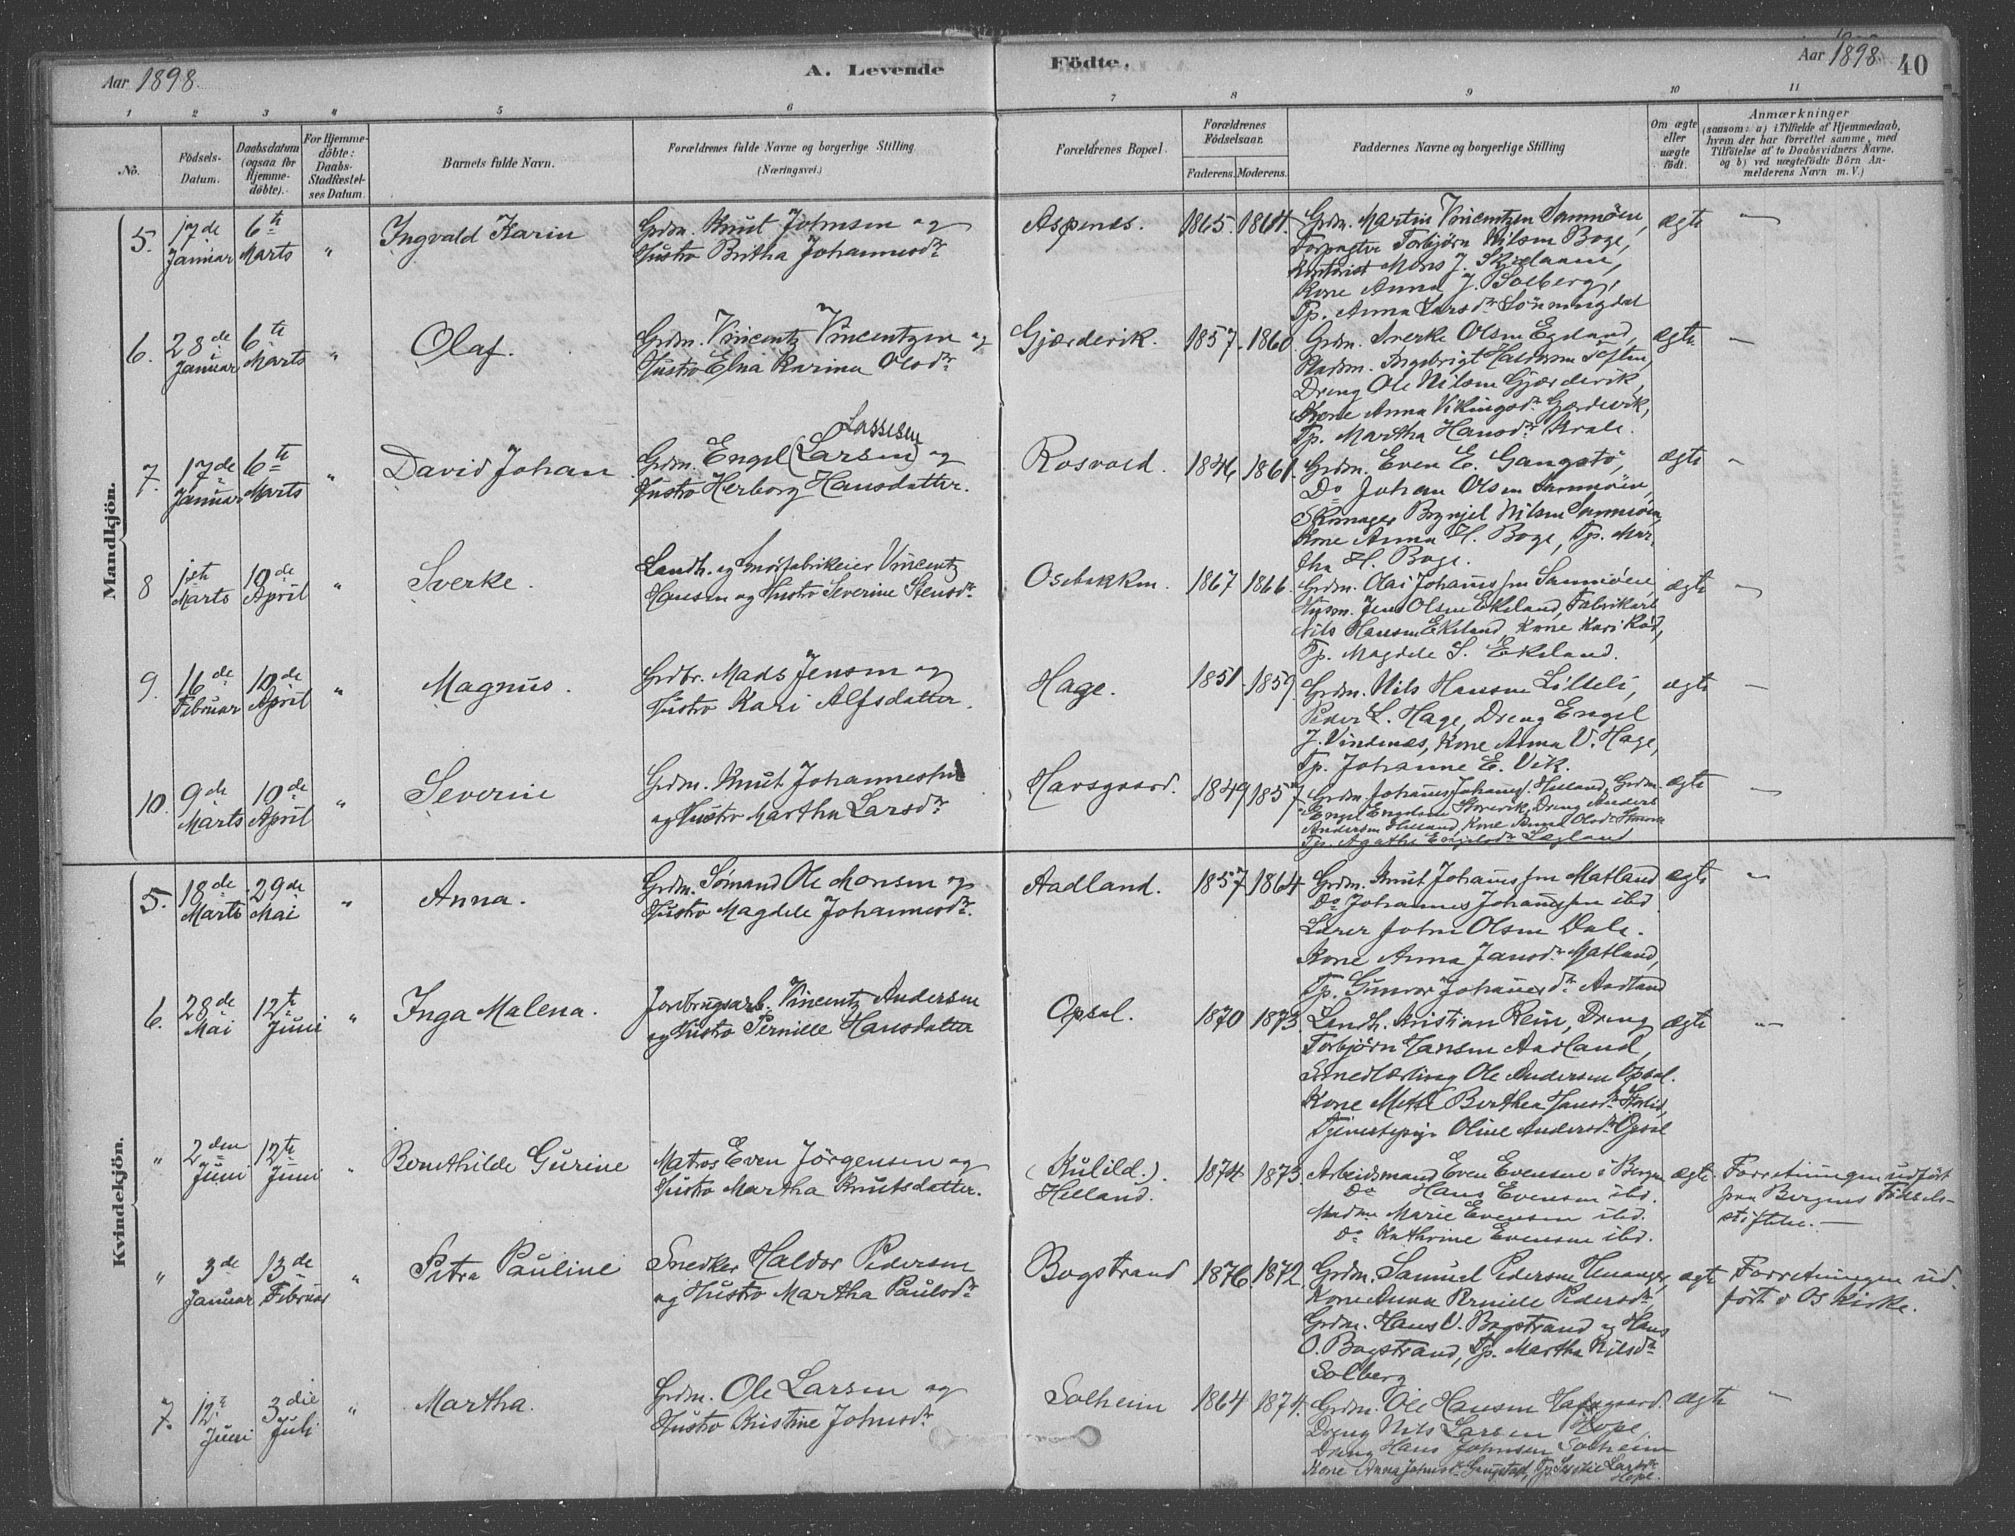 Aar 1898.
A. Levende
Födte.
Aar 1898
40
1 2 3 4 5 6 7 8 9 10 11
No.
Födsels-
Datum.
Daabsdatum
(ogsaa for
Hjemme-
döbte).
For Hjemme-
döbte:
Daabs-
Stadfæstel-
ses Datum.
Barnets fulde Navn.
Forældrenes fulde Navne og borgerlige Stilling
(Næringsvei.)
Forældrenes Bopæl.
Forældrenes
Födselsaar.
Faderens. Moderens.
Faddernes Navne og borgerlige Stilling
Om ægte
eller
uægte
födt.
Anmærkninger
(saasom: a) i Tilfælde af Hjemmedaab,
hvem der har forrettet samme, med
Tilföielse af to Daabsvidners Navne,
og b) ved uægtefödte Börn An-
melderens Navn m. V.)
Mandkjön.
5. 17de Januar
6te Marts
"
Ingvald Karin
Grdm. Knut Johnsen og
Hustro Britha Johannesdr.
Aspenes.
1865. 1864.
Grdm. Martin Vincentzen Sammöen,
Forpagter Torbjörn Nilsen Boge,
Mons J.
Kone Anna J. Solberg,
Tp. Anna Larsdr. Sönningdal
ægte
6. 28de Januar
6te Marts
"
Olaf.
Grdm. Vincentz Vincentzen og
Hustro Elna Karina Olsdr.
Gjærdevik.
1857. 1860
Grdm. Sverke Olsen Egeland,
Brynhrigt Haldorsen Toften,
Dreng Ole Nilsen Gjærdevik,
Kone Anna Vikingsdr. Gjærdevik,
Tp. Martha Hansdr.
ægte
7. 17de Januar
6te Marts
"
David Johan
Lassesen
Grdm. Engel (Larsen) og
Hustro Herborg Hansdatter.
Rosvold.
1846 1861.
Grdm. Even E. Gangstö,
Do Johan Olsen Sammöen,
Skomager Brynjel Nilsen Sammöen,
Kone Anna H. Boge, Tp. Mar-
tha H. Boge.
ægte
8 1ste Marts
10de April
"
Sverke.
Landh. og Smörfabrikeier Vincentz
Hansen og Hustro Severine Stensdr.
Osebakken.
1867 1866.
Grdm. Olai Johannessen Sammöen,
Husm. Jens Olsen Ekeland, Fabrikarb
Nils Hansen Ekeland Kone Kari Röd,
Tp. Magdele S. Ekeland.
ægte
9. 16de Februar
10de April
"
Magnus.
Grdbr. Mads Jensen og
Hustro Kari Alfsdatter.
Hage.
1851 1859
Grdm. Nils Hansen Lilleli,
Peder L. Hage, Dreng Engel
J. Vindenæs, Kone Anna V. Hage,
Tp. Johanne E. Vik.
ægte
10. 9de Marts
10de April
"
Severin
Grdm. Knut Johannessen
og Hustro Martha Larsdr.
Havsgaard.
1849 1857
Grdm. Johannes Johanness. Helland, Grdm.
Engel Engelsen Storevik, Dreng Anders
Andersen Helland, Kone Anna Olsdr.
Tp. Agathe Engelsdr. Lægland
ægte
Kvindekjön.
5. 18de Marts
29de Mai
"
Anna.
Grdm. Sömand Ole Monsen og
Hustro Magdele Johannesdr.
Aadland.
1857 1864
Grdm. Knut Johannessen Matland
Do Johannes Johannessen ibd.
Lærer John Olsen Dale.
Kone Anna Jansdr. Matland,
Tp. Gunvor Johannesdr. Aadland
ægte
6. 28de Mai
12te Juni
"
Inga Malena.
Jordbrugsarb. Vincentz Andersen
og Hustro Pernille Hansdatter
Opsal.
1870 1873
Landh. Kristian Rein, Dreng
Torbjörn Hansen Aadland,
Smedlærling Ole Andersen Opsal.
Kone Mette Berthea Jansdr.
Tjenestepige Oline Andersdr. Opsal
ægte
" 2den Juni
12te Juni
"
Bernthilde Gurine
Matros Even Jörgensen og
Hustro Martha Knutsdatter.
(Kulild.)
Helland.
1874 1873
Arbeidsmand Even Evensen i Bergen
Do Hans Evensen ibd.
Madme Marie Evensen ibd.
Do Kathrine Evensen ibd.
ægte.
Forretningen udfört
fra Bergens Födsels-
stiftelse.
" 3de Januar
13de Februar
"
Petra Pauline
Snedker Haldor Pedersen
og Hustro Martha Paulsdr.
Bogstrand
1876. 1872
Grdm. Samuel Pedersen
Kone Anna Pernille Pedersdr.
Grdm. Hans V. Bogstrand og Hans
O. Bogstrand, Tp. Martha Nilsdr.
Solberg
ægte
Forretningen ud-
fört i Os Kirke.
7. 12te Juni
3die Juli
"
Martha.
Grdm. Ole Larsen og
Hustro Kristine Johnsdr.
Solheim
1864 1874.
Grdm. Ole Hansen Hafsgaard.
Dreng Nils Larsen Hope,
Dreng Hans Johnsen Solheim
Kone Anna Johnsdr. Gangstad, Tp. Larsdr.
Hope.
ægte